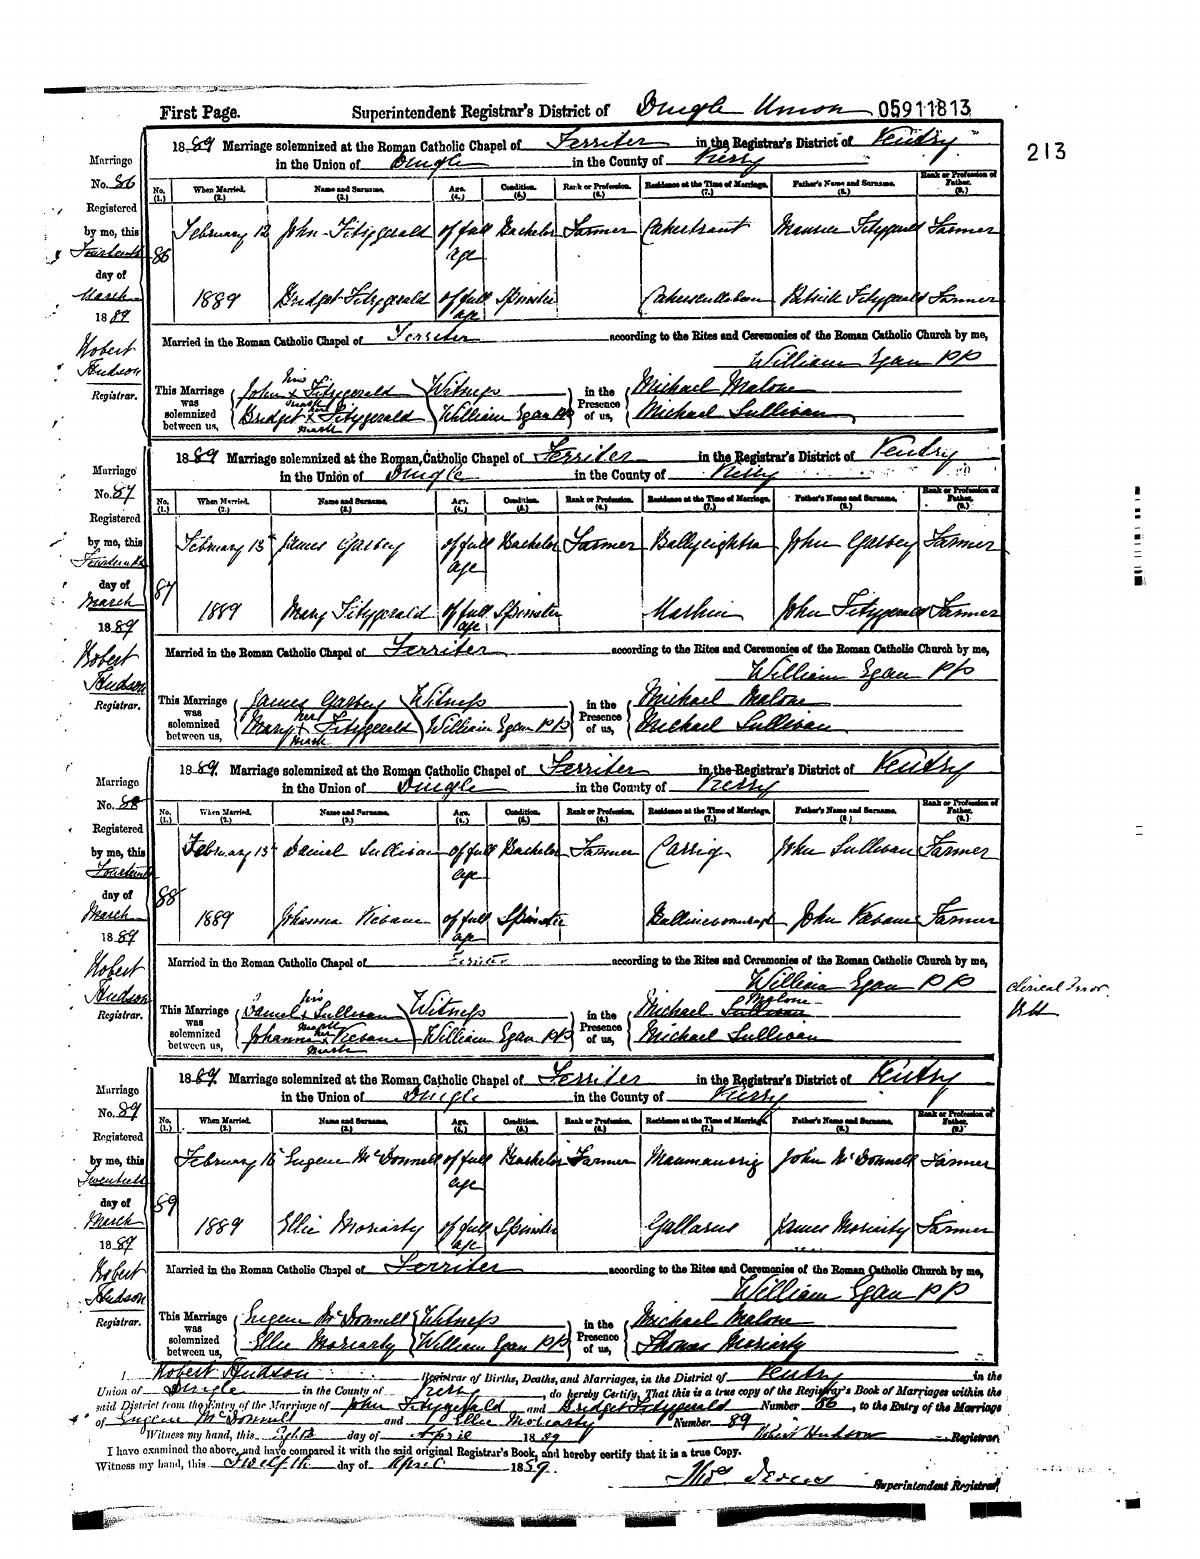 First Page. Superintendent Registrar's District of Dingle Union 05911813
213
1889 Marriage solemnized at the Roman Catholic Chapel of Ferriter in the Registrar's District of Ventry
in the Union of Dingle in the County of Kerry
Marriage No. 86 Registered by me, this Fourteenth day of March 1889 Robert Hudson Registrar.
No. (1.) When Married. (2.) Name and Surname. (3.) Age. (4.) Condition. (5.) Rank or Profession. (6.) Residence at the Time of Marriage. (7.) Father's Name and Surname. (8.) Rank or Profession of Father. (9.)
86 February 12 John Fitzgerald of full age Bachelor Farmer Maurice Fitzgerald Farmer
1889 Bridget Fitzgerald of full age Spinster Patrick Fitzgerald Farmer
Married in the Roman Catholic Chapel of Ferriter according to the Rites and Ceremonies of the Roman Catholic Church by me,
William Egan PP
This Marriage was solemnized between us, John his x mark Fitzgerald Witness in the Presence of us, Michael Malone
Bridget her x mark Fitzgerald William Egan PP Michael Sullivan
1889 Marriage solemnized at the Roman Catholic Chapel of Ferriter in the Registrar's District of Ventry
in the Union of Dingle in the County of Kerry
Marriage No. 87 Registered by me, this Fourteenth day of March 1889 Robert Hudson Registrar.
No. (1.) When Married. (2.) Name and Surname. (3.) Age. (4.) Condition. (5.) Rank or Profession. (6.) Residence at the Time of Marriage. (7.) Father's Name and Surname. (8.) Rank or Profession of Father. (9.)
87 February 13th James Garvey of full age Bachelor Farmer John Garvey Farmer
1889 Mary Fitzgerald of full age Spinster John Fitzgerald Farmer
Married in the Roman Catholic Chapel of Ferriter according to the Rites and Ceremonies of the Roman Catholic Church by me,
William Egan PP
This Marriage was solemnized between us, James Garvey Witness in the Presence of us, Michael Malone
Mary her x mark Fitzgerald William Egan PP Michael Sullivan
1889 Marriage solemnized at the Roman Catholic Chapel of Ferriter in the Registrar's District of Ventry
in the Union of Dingle in the County of Kerry
Marriage No. 88 Registered by me, this Fourteenth day of March 1889 Robert Hudson Registrar.
No. (1.) When Married. (2.) Name and Surname. (3.) Age. (4.) Condition. (5.) Rank or Profession. (6.) Residence at the Time of Marriage. (7.) Father's Name and Surname. (8.) Rank or Profession of Father. (9.)
88 February 13th Daniel Sullivan of full age Bachelor Farmer Carrig John Sullivan Farmer
1889 Johanna Kevane of full age Spinster John Kevane Farmer
Married in the Roman Catholic Chapel of Ferriter according to the Rites and Ceremonies of the Roman Catholic Church by me,
William Egan PP
This Marriage was solemnized between us, Daniel his x mark Sullivan Witness in the Presence of us, Michael Malone Sullivan
Johanna her x mark Kevane William Egan PP Michael Sullivan
Clerical Error.
1889 Marriage solemnized at the Roman Catholic Chapel of Ferriter in the Registrar's District of Ventry
in the Union of Dingle in the County of Kerry
Marriage No. 89 Registered by me, this Twentieth day of March 1889 Robert Hudson Registrar.
No. (1.) When Married. (2.) Name and Surname. (3.) Age. (4.) Condition. (5.) Rank or Profession. (6.) Residence at the Time of Marriage. (7.) Father's Name and Surname. (8.) Rank or Profession of Father. (9.)
89 February 16 Eugene McDonnell of full age Bachelor Farmer Maumanorig John McDonnell Farmer
1889 Ellie Moriarty of full age Spinster Gallarus James Moriarty Farmer
Married in the Roman Catholic Chapel of Ferriter according to the Rites and Ceremonies of the Roman Catholic Church by me,
William Egan PP
This Marriage was solemnized between us, Eugene McDonnell Witness in the Presence of us, Michael Malone
Ellie Moriarty William Egan PP Thomas Moriarty
I Robert Hudson Registrar of Births, Deaths, and Marriages, in the District of Ventry in the
Union of Dingle in the County of Kerry, do hereby Certify, That this is a true copy of the Registrar's Book of Marriages within the
said District from the Entry of the Marriage of John Fitzgerald and Bridget Fitzgerald Number 86, to the Entry of the Marriage
of Eugene McDonnell and Ellie Moriarty Number 89
Witness my hand, this Eighth day of April 1889 Robert Hudson Registrar.
I have examined the above, and have compared it with the said original Registrar's Book, and hereby certify that it is a true Copy.
Witness my hand, this Twelfth day of April 1889.
Superintendent Registrar.